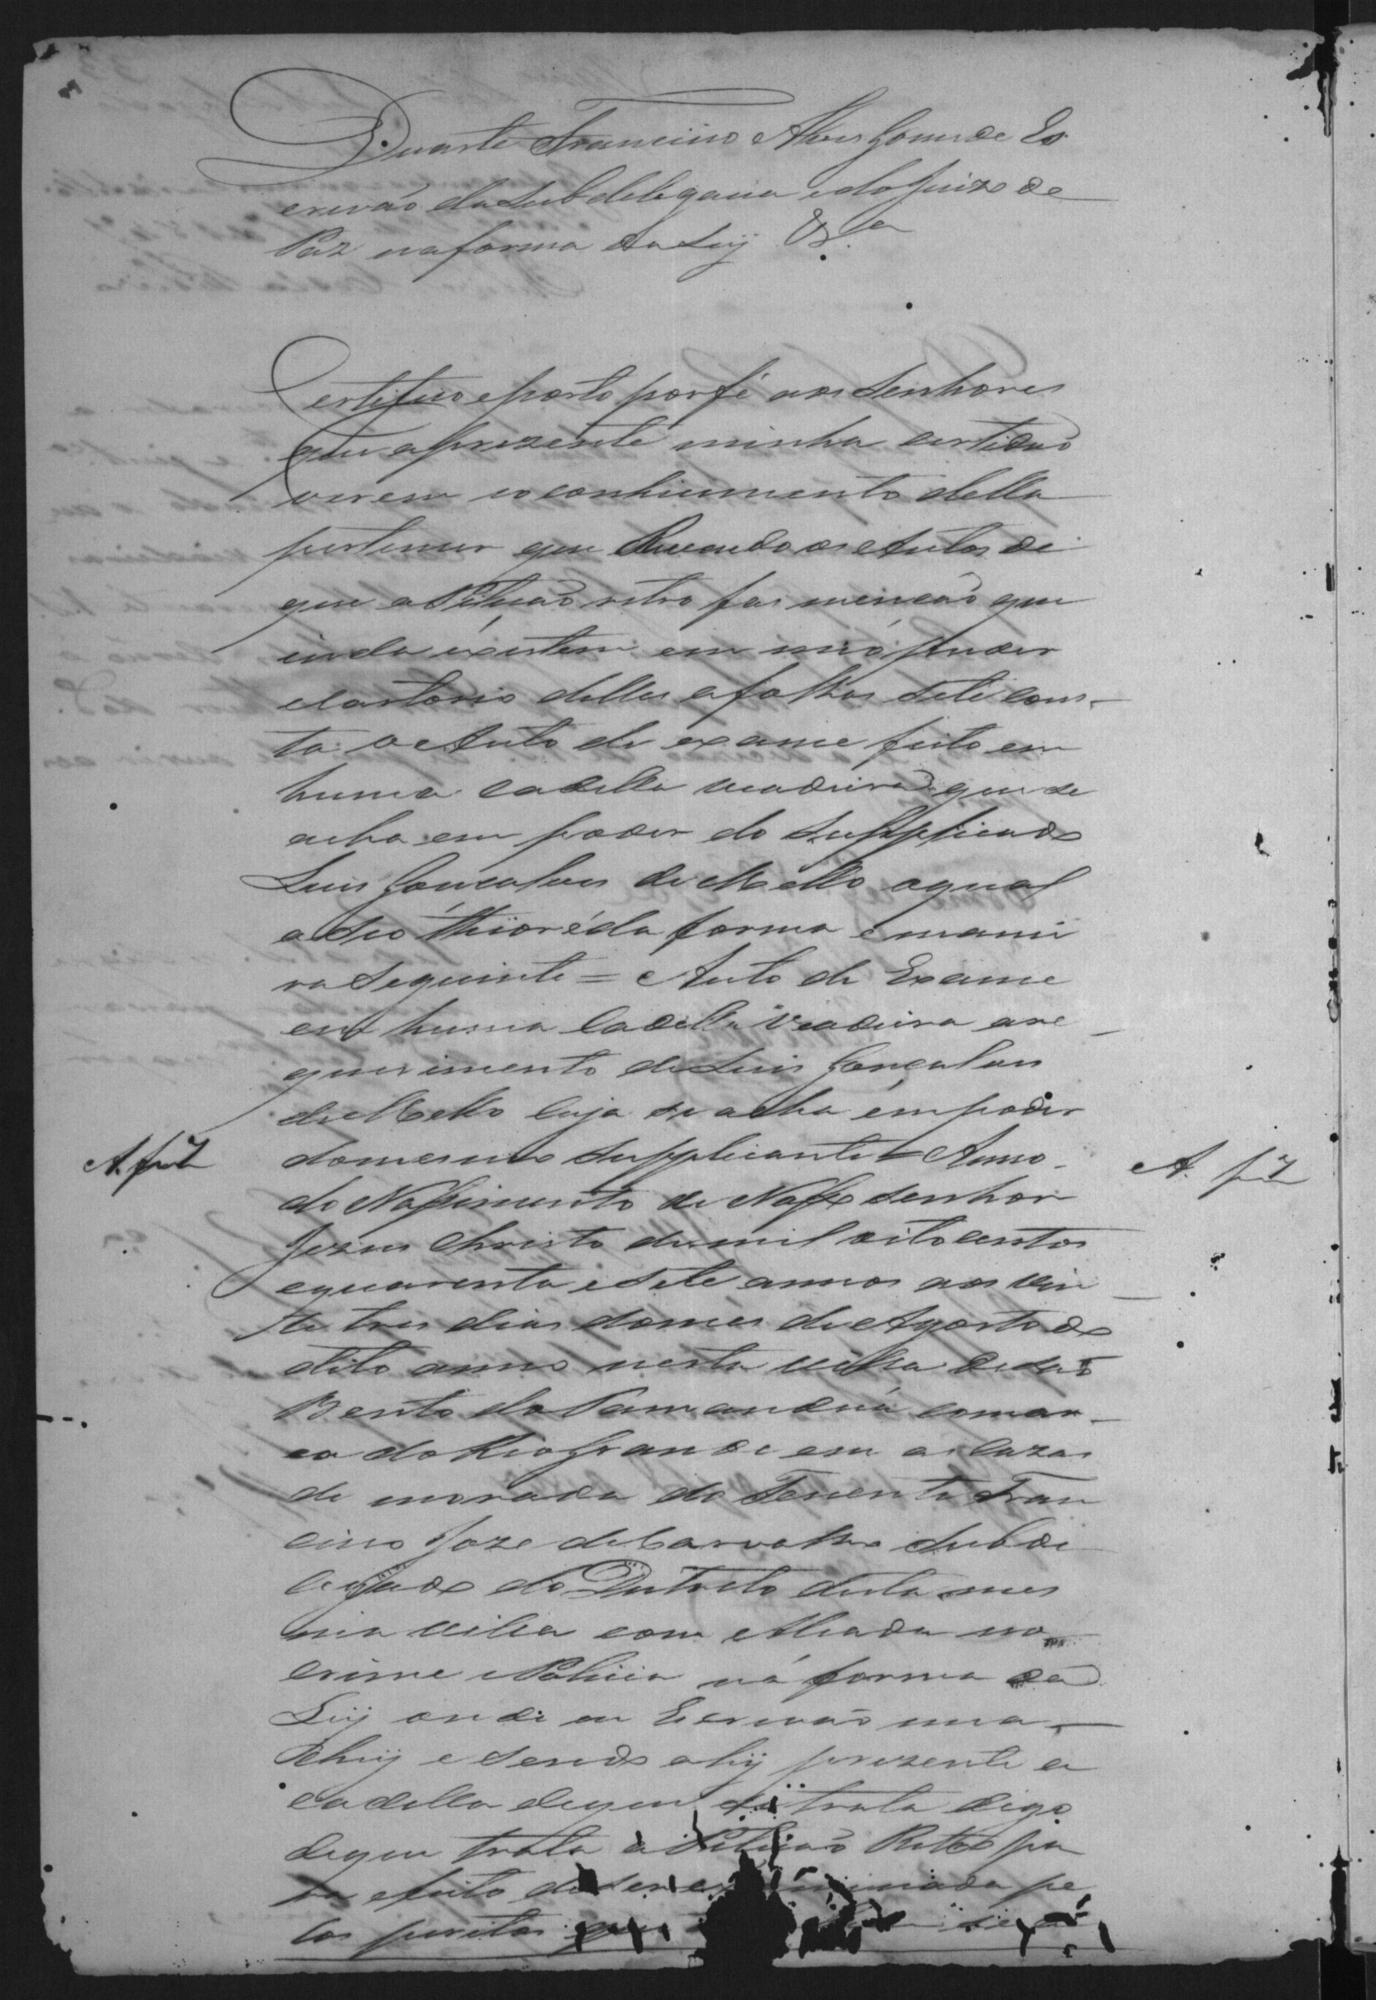 Duarte Francisco Alves Gomes de Es
crivão da Subdelegacia e do Juizo de
Paz na forma da Leÿ &.ª
Certifico e porto por fé aos Senhores
que a prezente minha certidaõ
virem e o conhicimento della
pertencer que Revendo os Autos de
que a Petiçaõ retro fas mencaõ que
inda éxistem em meo puder
e Cartorio delles a folhas Sete cons-
ta o Auto de exame feito em
huma cadella veadeira que se
acha em poder do Supplicado
Luis Gonçalves de Mello a qual
a Seo Thior é da forma e manei
ra Seguinte = Auto de Exame
em huma Cadella Veadeira a re
querimento de Luis Gonçalves
de Mello Cuja se acha em poder
do mesmo Supplicante = Anno
do Nassimento de Nosso Senhor
Jezus Christo de mil oito centos
e quarenta e Sete annos aos vin
te tres dias do mes de Agosto do
dito anno nesta villa de Saõ
Bento do Tamanduá comar-
ca do Rio Grande em as Cazas
de morada do Tenente Fran
cisco Joze de Carvalho Subde
legado do Distreto desta mes
ma villa com Alsada no
crime e Policia ná forma da
Leÿ onde eu Escrivaõ me a-
chey e sendo ahÿ prezente a
cadella de que se trata digo
de que trata a Petiçaõ Retro pa
ra efeito de ser examinada pe
los peritos
A. f. 7
A. f. 7